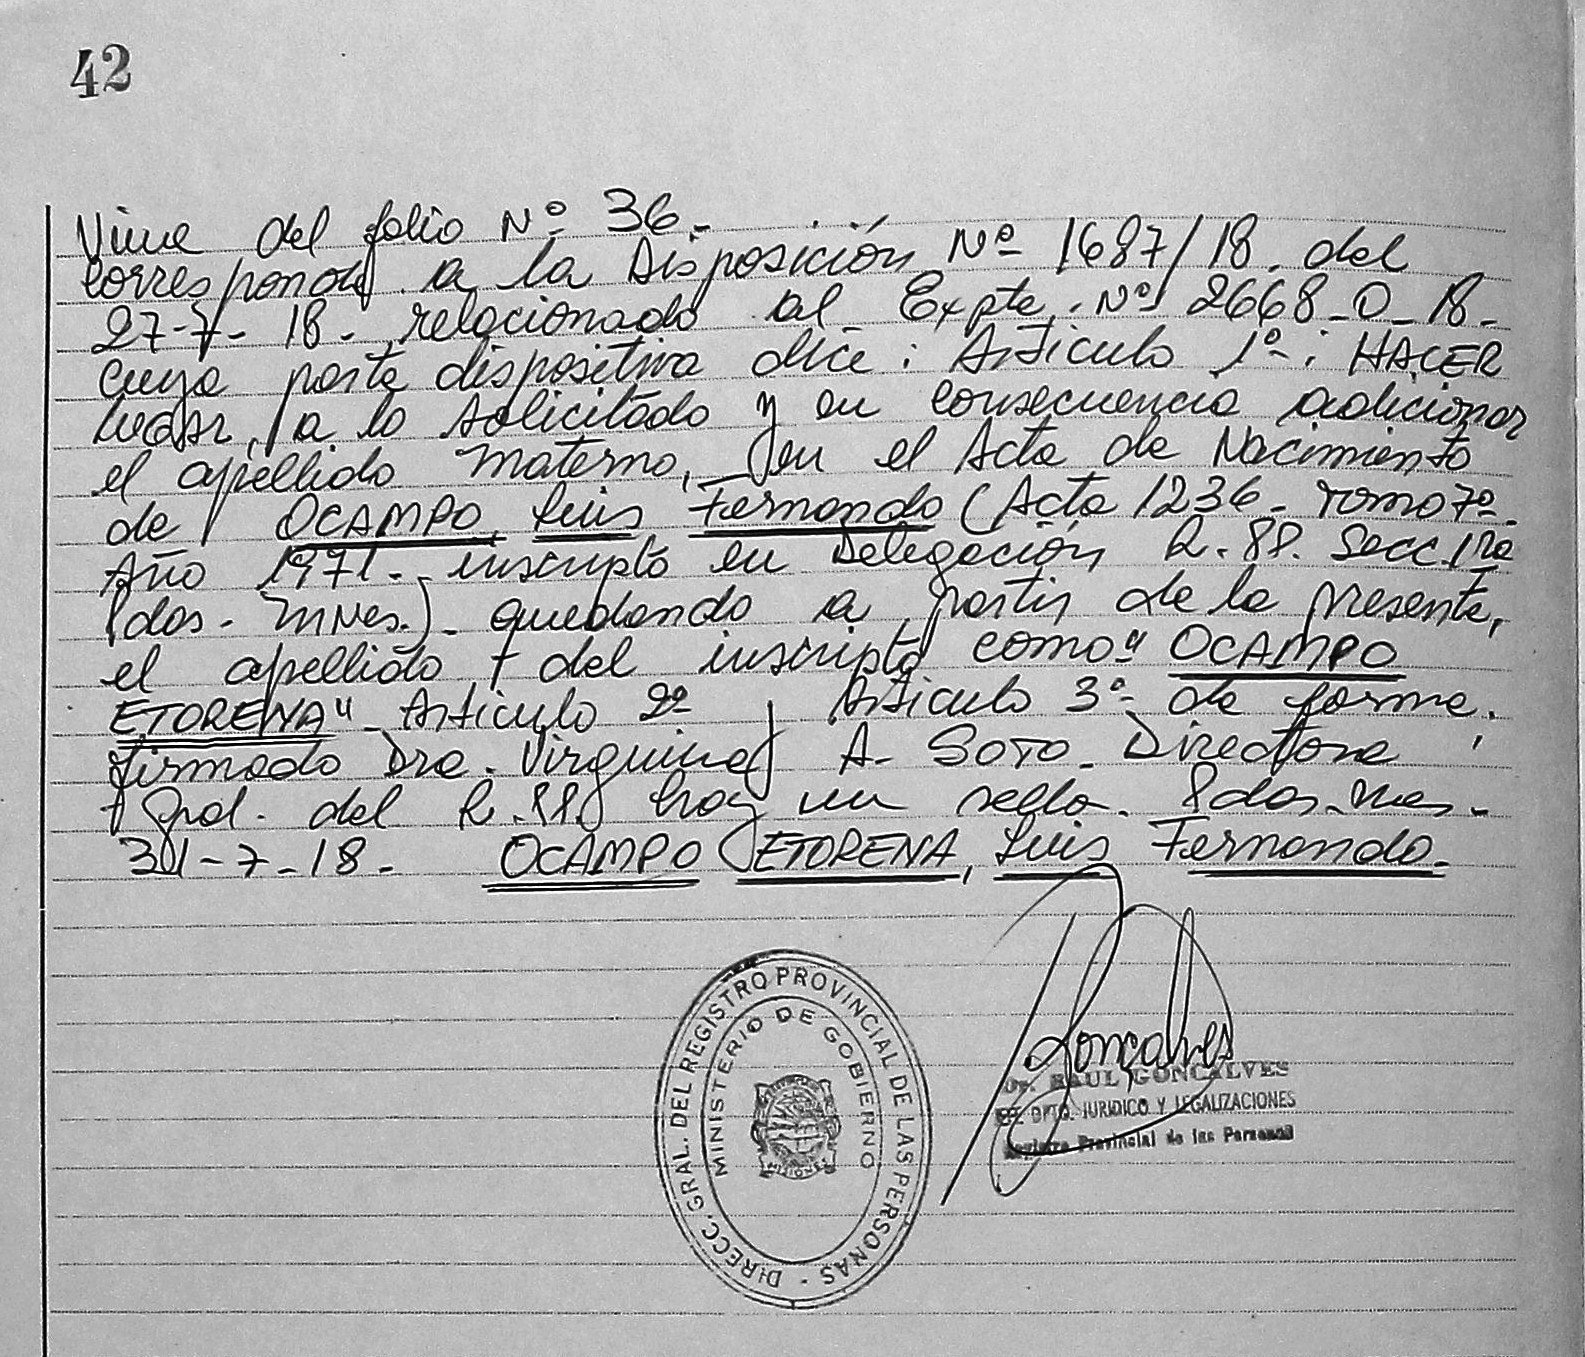 42
Viene del folio Nº 36.-
Corresponde a la Disposición Nº 1687/18. del
27-7-18-. relacionado al Expte. Nº 2668-O-18-
cuya parte dispositiva dice: Artículo 1º-: HACER
lugar, a lo solicitado y en consecuencia adicionar
el apellido materno, en el Acta de Nacimiento
de OCAMPO, Luis Fernando (Acta 1236- Tomo 7º-
Año 1971-. inscripto en Delegación R.PP. Secc. 1ra
Pdas- Mnes.)- quedando a partir de la presente,
el apellido del inscripto como "OCAMPO
ETORENA"- Artículo 2º y Artículo 3º- de forma.
firmado Dra. Virguina A. SOTO- Directora
Gral. del R.PP. hay un sello. Pdas-Mnes-
31-7-18- OCAMPO ETORENA, Luis Fernando-
DIRECC. GRAL. DEL REGISTRO PROVINCIAL DE LAS PERSONAS -
MINISTERIO DE GOBIERNO
MISIONES
Gonçalves
Dr. RAUL GONCALVES
DPTO. JURIDICO Y LEGALIZACIONES
Registro Provincial de las Personas